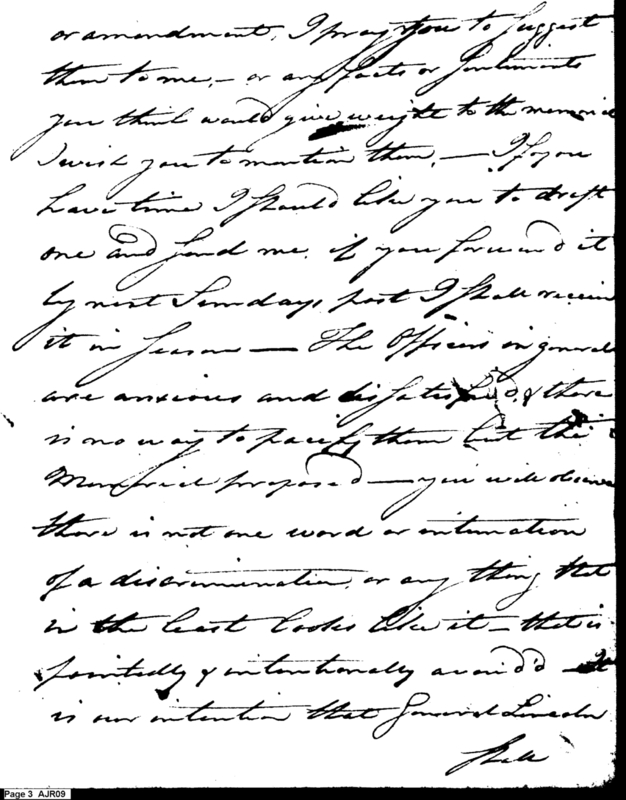 or amendment, I pray you to suggest
them to me, – or any facts or sentiments
you think would give weight to the memorial
I wish you to mention them, – If you
have time I should like you to draft
one and send me, if you forward it
by next Sundays post I shall receive
it in season – The Officers in general
are anxious and dissatisfied & there
is no way to pacify them but the
Memorial proposed – you will observe
there is not one word or intimation
of a discrimination, or any thing that
in the least looks like it – that is
pointedly & intentionally avoid'd – It
is our intention that General Lincoln
shall
Page 3 AJR09